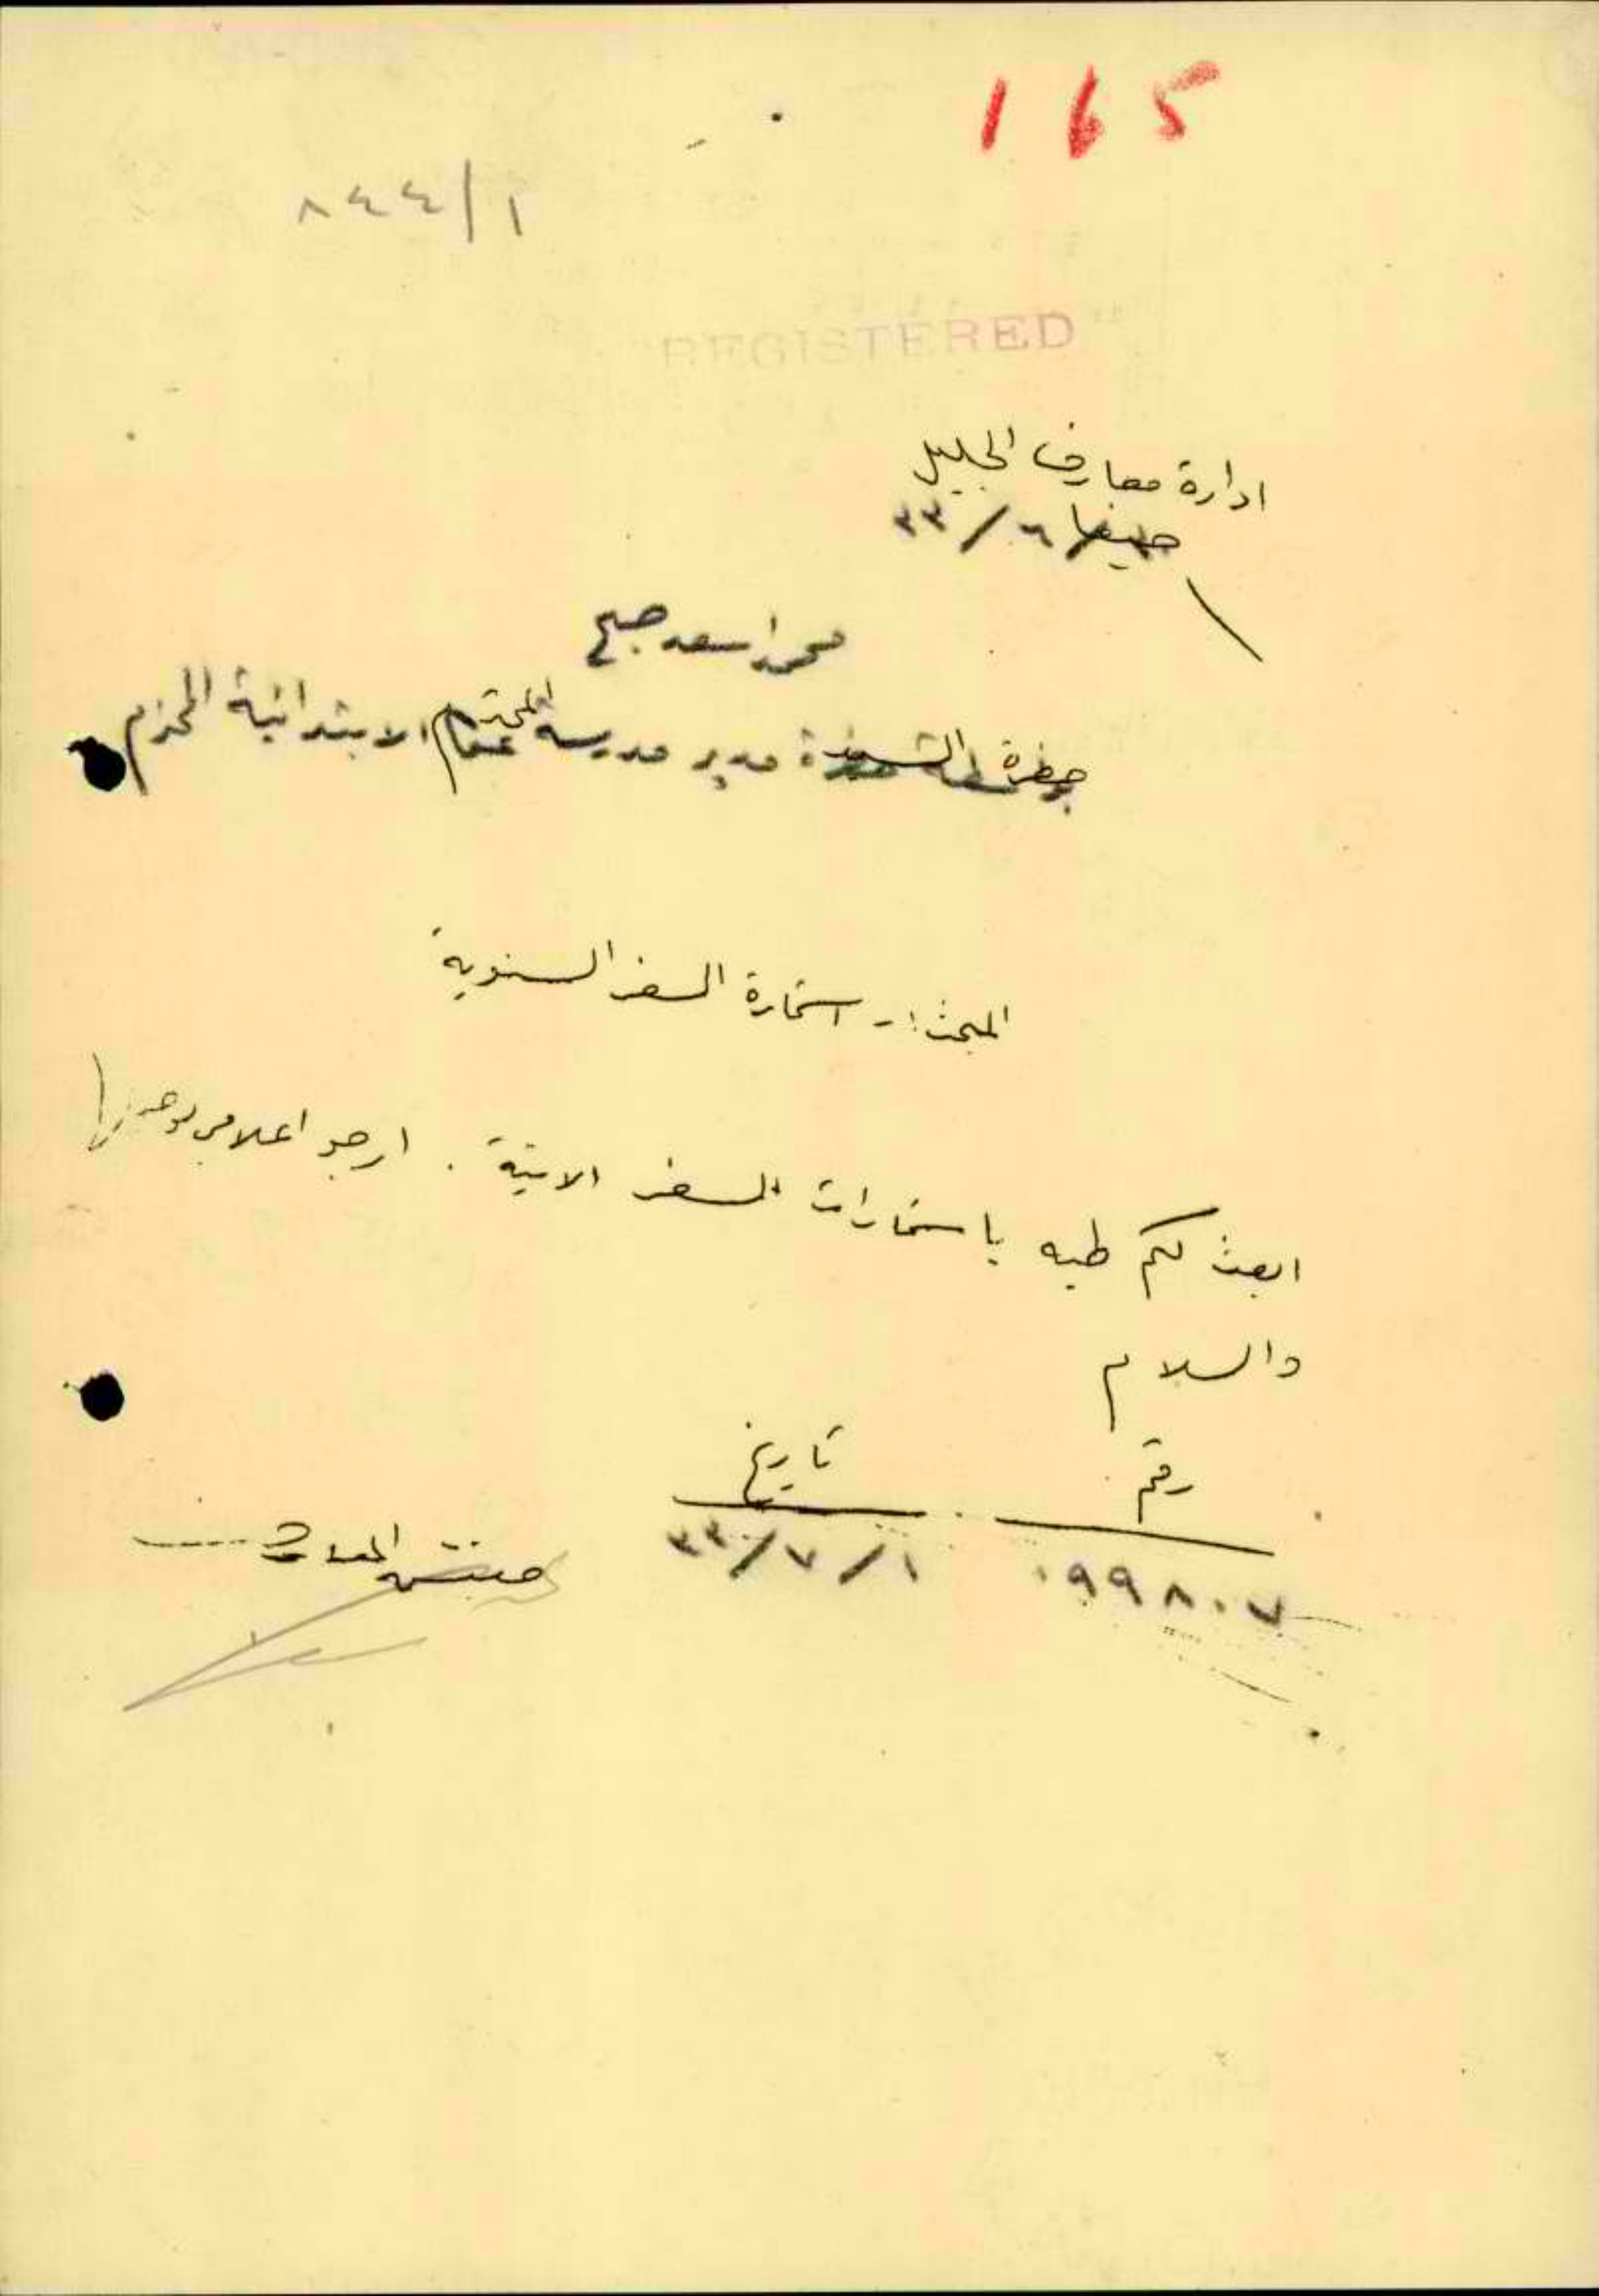 165
٨٤٤/١
"REGISTERED"
ادارة معارف الجليل
حيفا ٦/ ٣٣
محمد اسعد صبح
حضرة مدير مدرسة الابتدائية المحترم
المبحث :- استمارة السفر السنوية
ابعث لكم طيه باستمارات السفر الاتية . ارجو اعلامي بوصولها
والسلام
رقم تاريخ
٠٩٩٨٠٧ ٣٣/٧/١
مفتش المعارف